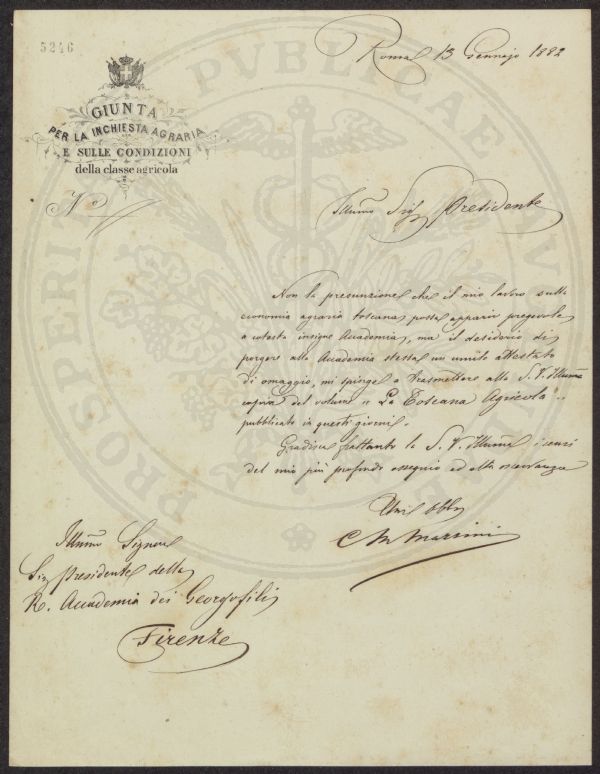 5246
Roma 13 Gennajo 1882
GIUNTA
PER LA INCHIESTA AGRARIA
E SULLE CONDIZIONI
della classe agricola
No
Illmo Sig Presidente
Non la presunzione che il mio lavoro sulla
economia agraria toscana possa apparir pregevole
a cotesta insigne Accademia, ma il desiderio di
porgere alla Accademia stessa un umile attestato
di omaggio, mi spinge a trasmettere alla S. V. Illma
copia del volume "La Toscana Agricola"
pubblicato in questi giorni.
Gradisca frattanto la S. V. Illma i sensi
del mio più profondo ossequio ed alta osservanza
Obb
C M Mazzini
Illmo Signore
Sig Presidente della
R. Accademia dei Georgofili
Firenze
PROSPERITATI PVBLICAE AV